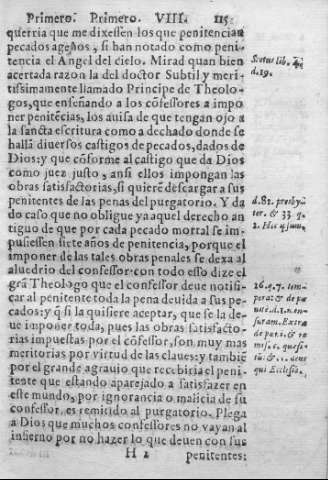 Primero. Primero. VIII. 115.
querria que me dixessen los que penitencian
pecados agenos, si han notado como peni-
tencia el Angel del cielo. Mirad quan bien
acertada razon la del doctor Subtil y meri-
tissimamente llamado Principe de Theolo-
gos, que enseñando a los cõfessores a impo
ner penitẽcias, los auisa de que tengan ojo a
la sancta escritura como a dechado donde se
hallã diuersos castigos de pecados, dados de
Dios: y que cõforme al castigo que da Dios
como juez justo, ansi ellos impongan las
obras satisfactorias, si quierẽ descargar a sus
penitentes de las penas del purgatorio. Y da
do caso que no obligue ya aquel derecho an
tiguo de que por cada pecado mortal se im-
pusiessen siete años de penitencia, porque el
imponer de las tales obras penales se dexa al
aluedrio del confessor: con todo esso dize el
grã Theologo que el confessor deue notifi-
car al penitente toda la pena deuida a sus pe-
cados: y q̃ si la quisiere aceptar, que se la de-
ue imponer toda, pues las obras satisfacto-
rias impuestas por el cõfessor, son muy mas
meritorias por virtud de las claues: y tambiẽ
por el grande agrauio que recibiria el peni-
tente que estando aparejado a satisfazer en
este mundo, por ignorancia o malicia de su
confessor, es remitido al purgatorio. Plega
a Dios que muchos confessores no vayan al
infierno por no hazer lo que deuen con sus
H 2 penitentes:
Scotus lib. 4.
d. 19.
d. 82. presby
ter. & 33. q.
2. Hoc ipsum.
26. q. 7. tem-
pora: & de pœ
nit. d. 1. men-
suram. Extra
de pœni. & re
mis. c. quesi-
tũ: & c. deus
qui Ecclesiã.